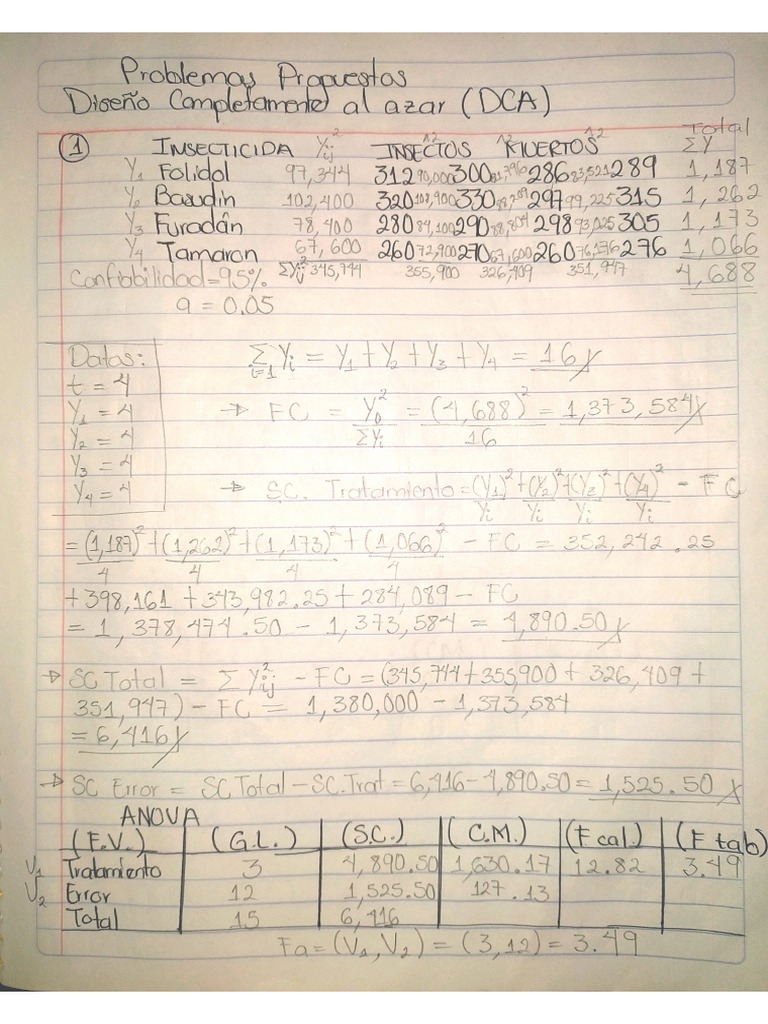 Problemas Propuestos
Diseño Completamente al azar (DCA)
Total
① INSECTICIDA Yij² INSECTOS MUERTOS ΣY
Y₁ Folidol 97,344 312 90,000 300 81,796 286 83,521 289 1,187
Y₂ Basudin 102,400 320 108,900 330 88,209 297 99,225 315 1,262
Y₃ Furadán 78,400 280 84,100 290 88,804 298 93,025 305 1,173
Y₄ Tamaron 67,600 260 72,900 270 67,600 260 76,176 276 1,066
Confiabilidad = 95%. ΣYij² 345,744 355,900 326,409 351,947 4,688
a = 0.05
Datos:
t = 4
Y₁ = 4
Y₂ = 4
Y₃ = 4
Y₄ = 4
Σi=1 Yi = Y₁ + Y₂ + Y₃ + Y₄ = 16
→ FC = Y₀²/ΣYi = (4,688)²/16 = 1,373,584
→ S.C. Tratamiento = (Y₁)²/Yi + (Y₂)²/Yi + (Y₃)²/Yi + (Y₄)²/Yi - FC
= (1,187)²/4 + (1,262)²/4 + (1,173)²/4 + (1,066)²/4 - FC = 352,242.25
+ 398,161 + 343,982.25 + 284,089 - FC
= 1,378,474.50 - 1,373,584 = 4,890.50
→ SC Total = ΣYij² - FC = (345,744 + 355,900 + 326,409 +
351,947) - FC = 1,380,000 - 1,373,584
= 6,416
→ SC Error = SC Total - SC.Trat = 6,416 - 4,890.50 = 1,525.50
ANOVA
(F.V.) (G.L.) (S.C.) (C.M.) (F cal.) (F tab)
V₁ Tratamiento 3 4,890.50 1,630.17 12.82 3.49
V₂ Error 12 1,525.50 127.13
Total 15 6,416
Fa = (V₁,V₂) = (3,12) = 3.49